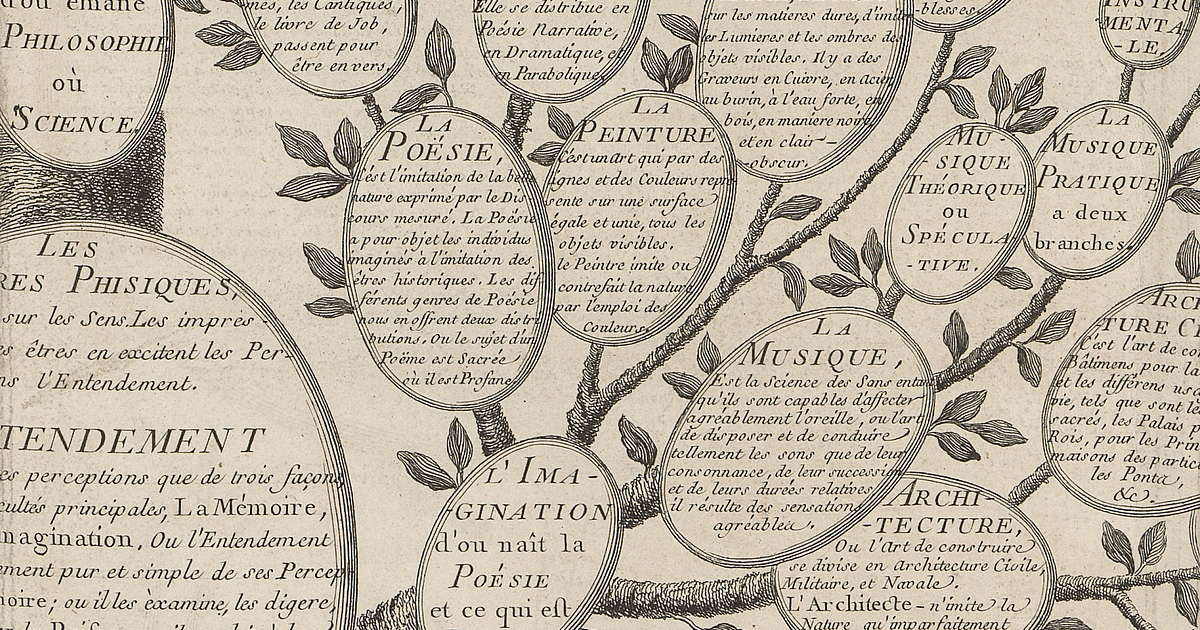 d'où émane
PHILOSOPHIE
où
SCIENCE.
mes, les Cantiques,
le livre de Job,
passent pour
être en vers.
Elle se distribue en
Poésie Narrative,
en Dramatique, et
en Parabolique.
sur les matieres dures, d'imiter
les Lumieres et les ombres des
objets visibles. Il y a des
Graveurs en Cuivre, en Acier
au burin, à l'eau forte, en
bois, en maniere noire
et en clair-
-obscur.
-blesses.
INSTRU
MENTA
-LE.
LA
POÉSIE,
C'est l'imitation de la belle
nature exprimé par le Dis
cours mesuré. La Poésie
a pour objet les individus
imaginés à l'imitation des
êtres historiques. Les dif
férents genres de Poésie
nous en offrent deux distri
butions. Ou le sujet d'un
Poëme est Sacrée
où il est Profane
LA
PEINTURE
C'est un art qui par des
lignes et des Couleurs repré
sente sur une surface
égale et unie, tous les
objets visibles.
le Peintre imite ou
contrefait la nature
par l'emploi des
Couleurs.
MU-
-SIQUE
THÉORIQUE
ou
SPÉCULA
-TIVE.
LA
MUSIQUE
PRATIQUE
a deux
branches.
LES
RES PHISIQUES,
sur les Sens. Les impres-
es êtres en excitent les Per-
ns l'Entendement.
TENDEMENT
es perceptions que de trois façons
cultés principales, La Mémoire,
magination, Ou l'Entendement
ement pur et simple de ses Percep
moire; ou il les èxamine, les digere,
LA
MUSIQUE,
Est la Science des Sons entant
qu'ils sont capables d'affecter
agréablement l'oreille, ou l'art
de disposer et de conduire
tellement les sons que de leur
consonnance, de leur succession
et de leurs durées relatives
il résulte des sensations
agréables.
ARCHI
-TURE C
C'est l'art de co
Bâtimens pour la
et les différens us
pie, tels que sont l
sacrés, les Palais
Rois, pour les Prin
maisons des partic
les Ponts,
&c.
L'IMA-
-GINATION
d'ou naît la
POÉSIE
et ce qui est
ARCHI-
-TECTURE,
Ou l'Art de construire
se divise en Architecture Civile,
Militaire, et Navale.
L'Architecte - n'imite la
Nature qu'imparfaitement